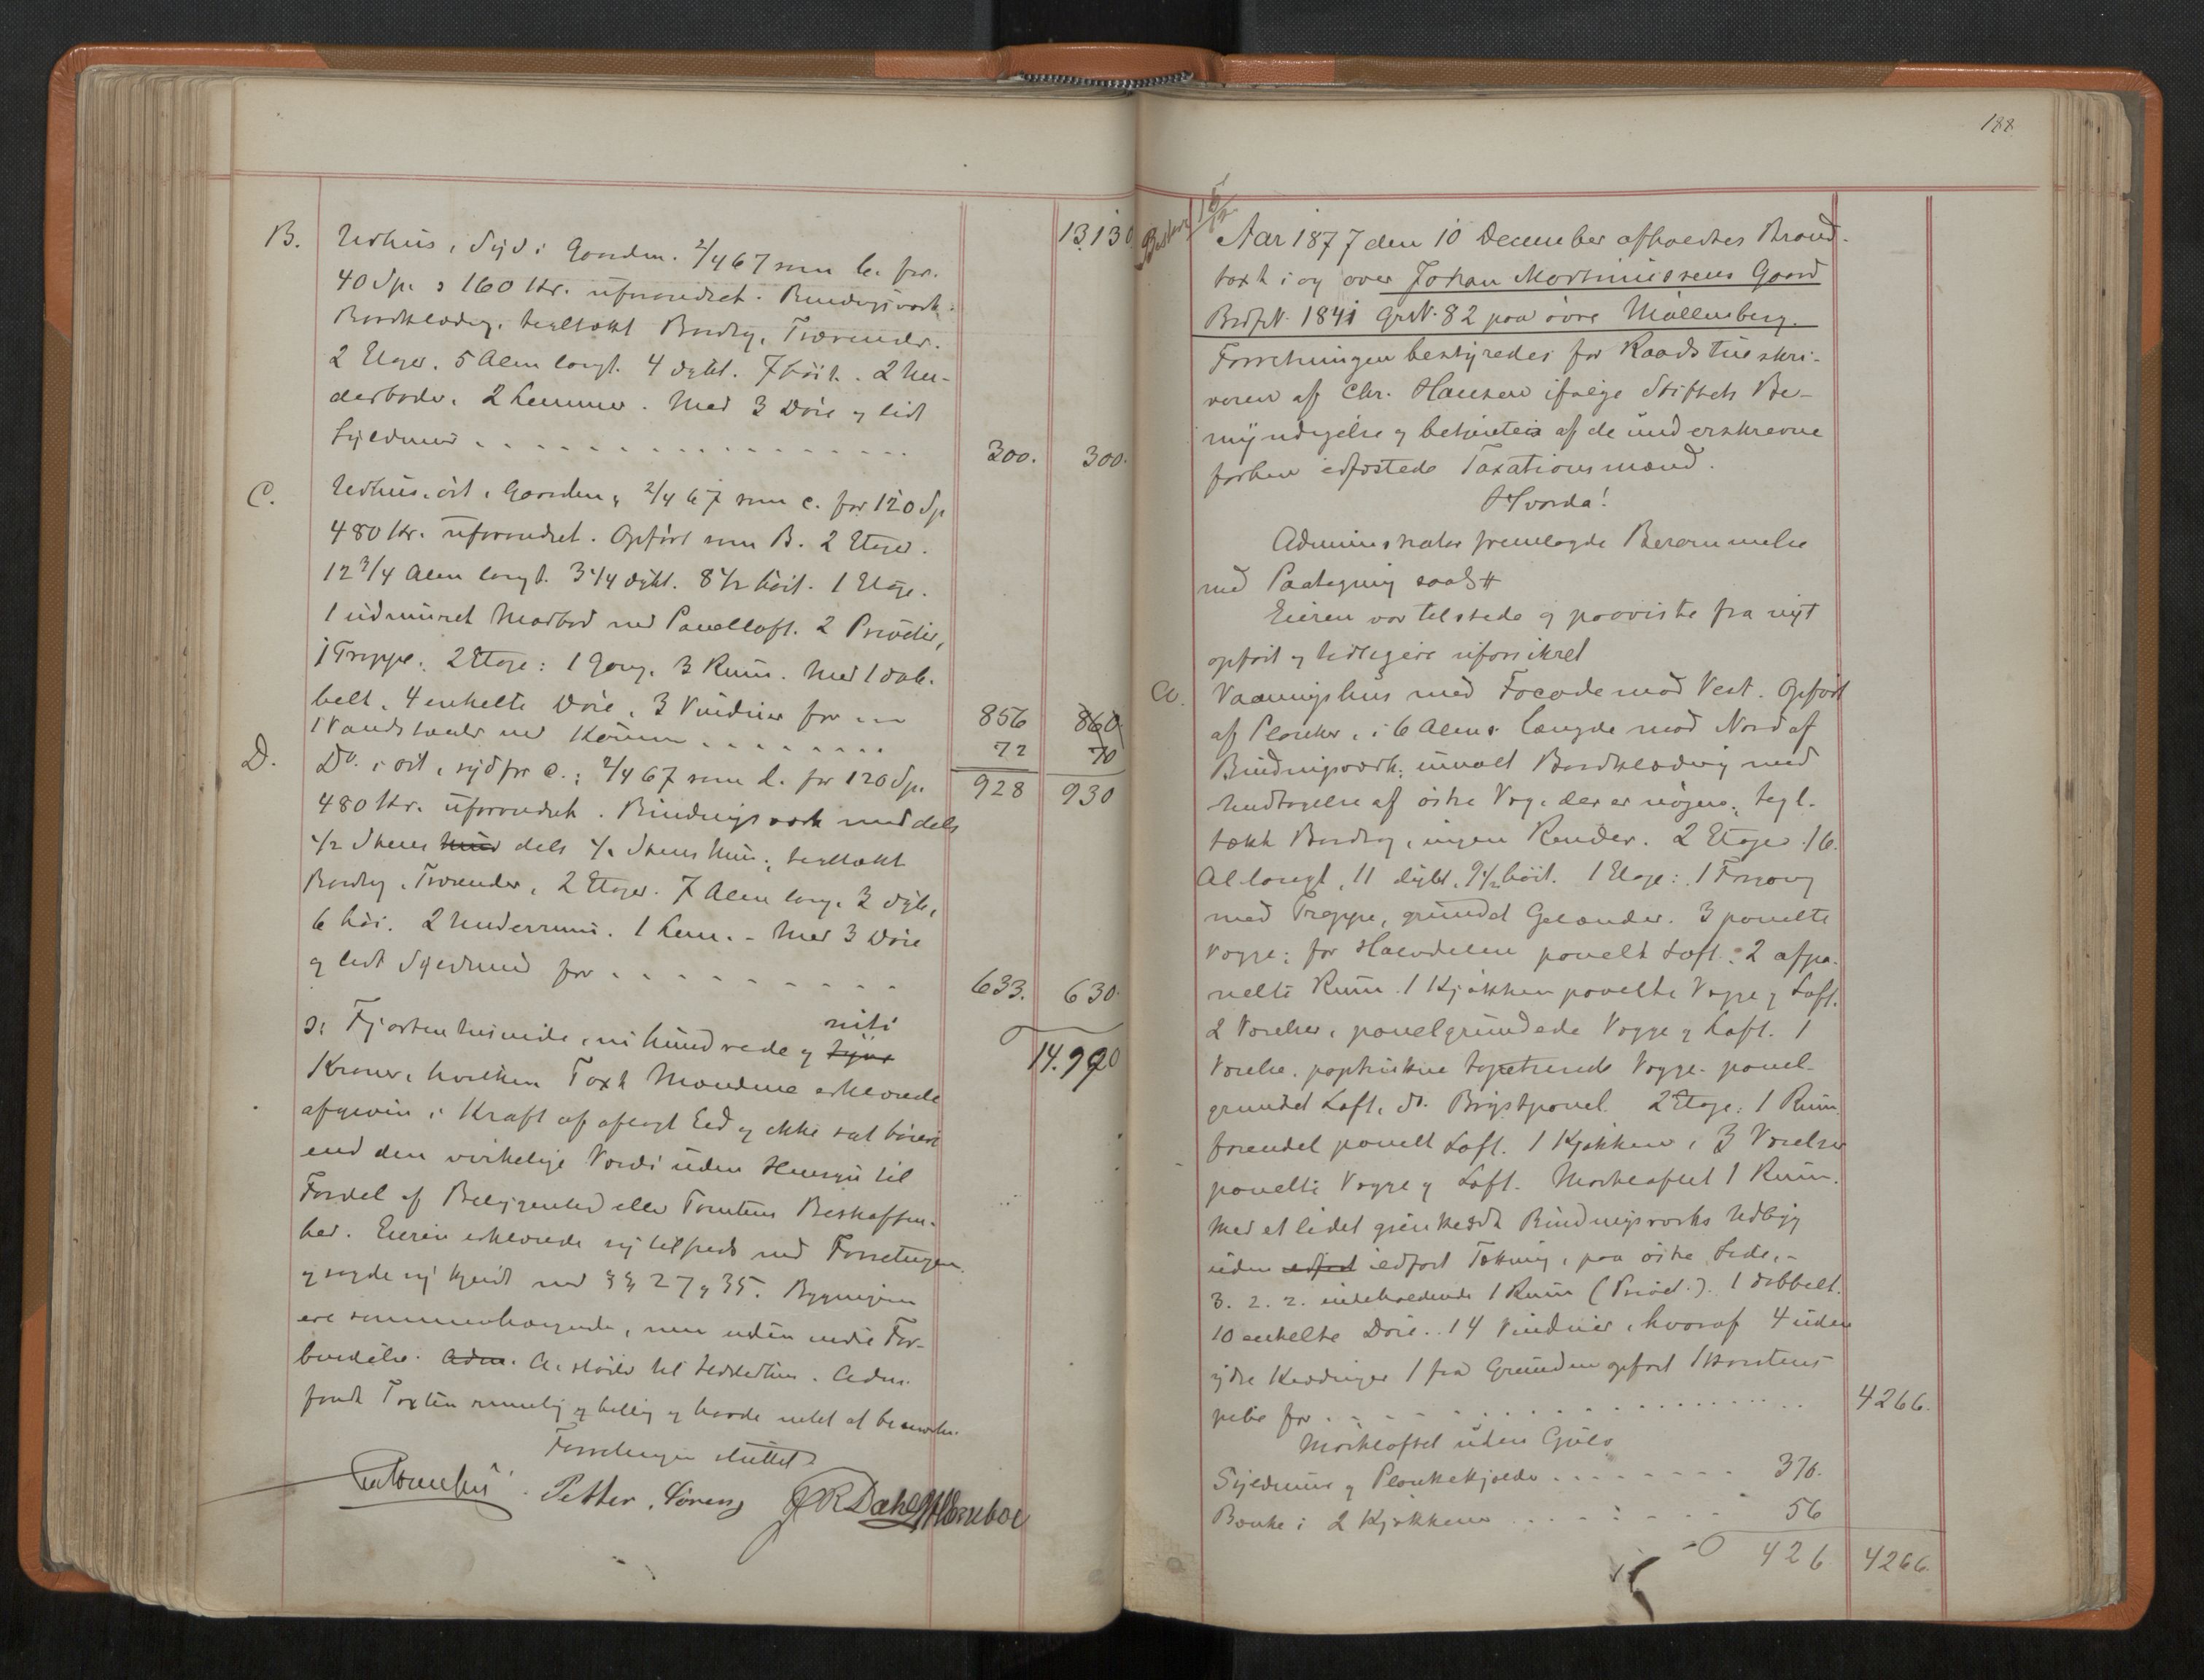 13.130
B. Udhus, Syd i Gaarden. 2/4 67 som b. for
40 Sp. ɔ 160 Kr. uforandret. Bindingsværk.
Bordklædng, tegltækt Bordtag, Trærender.
2 Etager. 5 Alen langt. 4 dybt. 7 høit. 2 Un-
derboder. 2 Lemmer. Med 3 Døre og lidt
Syldmur . . . 300. 300.
C. Udhus, øst i Gaarden, 2/4 67 som c. for 120 Sp
480 Kr. uforandret. Opført som B. 2 Etager.
12 3/4 Alen langt. 3 1/4 dybt. 8 1/2 høit. 1 Etage.
1 udmuret Madbod med Panelloft. 2 Privetter,
1 Trappe. 2 Etage: 1 Gang, 3 Rum. Med 1 dob-
belt, 4 enkelte Døre, 3 Vinduer for 856 860
1 Vandskaale med Kumme . . . 72 70
928 930
D. Do. i øst, syd for C.; 2/4 67 som d. for 120 Sp.
480 Kr. uforandret. Bindingsværk med dels
1/2 Steens Muur dels 1/4 Steens Mur, tegltækt
Bordtag, Trærender, 2 Etager. 7 Alen lang, 3 dyb,
6 høi. 2 Underrum. 1 Lem. - Med 3 Døre
og lidt Syldmur for . . . 633. 630.
niti
ɔ: Fjortentusinde, ni hundrede og tyve 14.990
Kroner, hvilken Taxt Mændene erklærede
afgiven i Kraft af aflagt Eed og ikke sat høiere
end den virkelige Værdi uden Hensyn til
Fordel af Beliggenhed eller Tomtens Beskaffen-
hed. Eieren erklærede sig tilfreds med Forretningen
og sagde sig kjendt med §§ 27 og 35. Bygningerne
ere sammenhængende, men uden indre For-
bindelse. Adm. A. støder til Ildstedhus. Adm.
fandt Taxten rimelig og billig og havde intet at bemærke.
Forretningen sluttet
Petter Sørens J R Dahl Hornboe
188
15/12
Aar 1877 den 10 December afholdtes Brand-
taxt i og over Johan Mortinussens Gaard
Brdf N. 1841 Gr N. 82 paa øvre Møllenberg.
Forretningen bestyredes for Raadstueskri-
veren af Chr. Hansen ifølge Stiftets Be-
myndigelse og betjentes af de underskrevne
forhen edfæstede Taxationsmænd.
Hvorda!
Administrator fremlagde Berammelse
med Paategning saal.
Eieren var tilstede og paaviste fra nyt
opført og tidligere uforsikret
A. Vaaningshus med Facade mod Vest. Opført
af Planker, i 6 Alens Længde mod Nord af
Bindingsværk; umalt Bordklædning med
Undtagelse af østre Væg, der er nøgen; tegl-
tækt Bordtag, ingen Render. 2 Etager. 16.
Al. langt, 11 dybt, 9 1/2 høit. 1 Etage: 1 Forgang
med Trappe, grundet Gelænder. 3 panelte
Vægge; for Halvdelen panelt Loft; 2 afpa-
nelte Rum. 1 Kjøkken panelte Vægge og Loft.
2 Værelser, panelgrundede Vægge og Loft. 1
Værelse, papstrukne tapetserede Vægge- panel-
grundet Loft, do. Brystpanel. 2 Etage: 1 Rum
forendel panelt Loft. 1 Kjøkken, 3 Værelser
panelte Vægge og Loft. Mørkeloftet 1 Rum.
Med et lidet Bindingsværks Udbyg
uden ildfast Tækning, paa østre Side, -
3. 2. 2. indeholdende 1 Rum (Privet.). 1 dobbelt.
10 enkelte Døre. 14 Vinduer, hvoraf 4 uden
ydre Klædninger 1 fra Grunden opført Skorstens-
pibe for . . . 4266.
Mørkloftet uden Gulv
Syldmur og Plankekjelder . . . 370.
Bænke i 2 Kjøkkener . . . 56
426 4266.